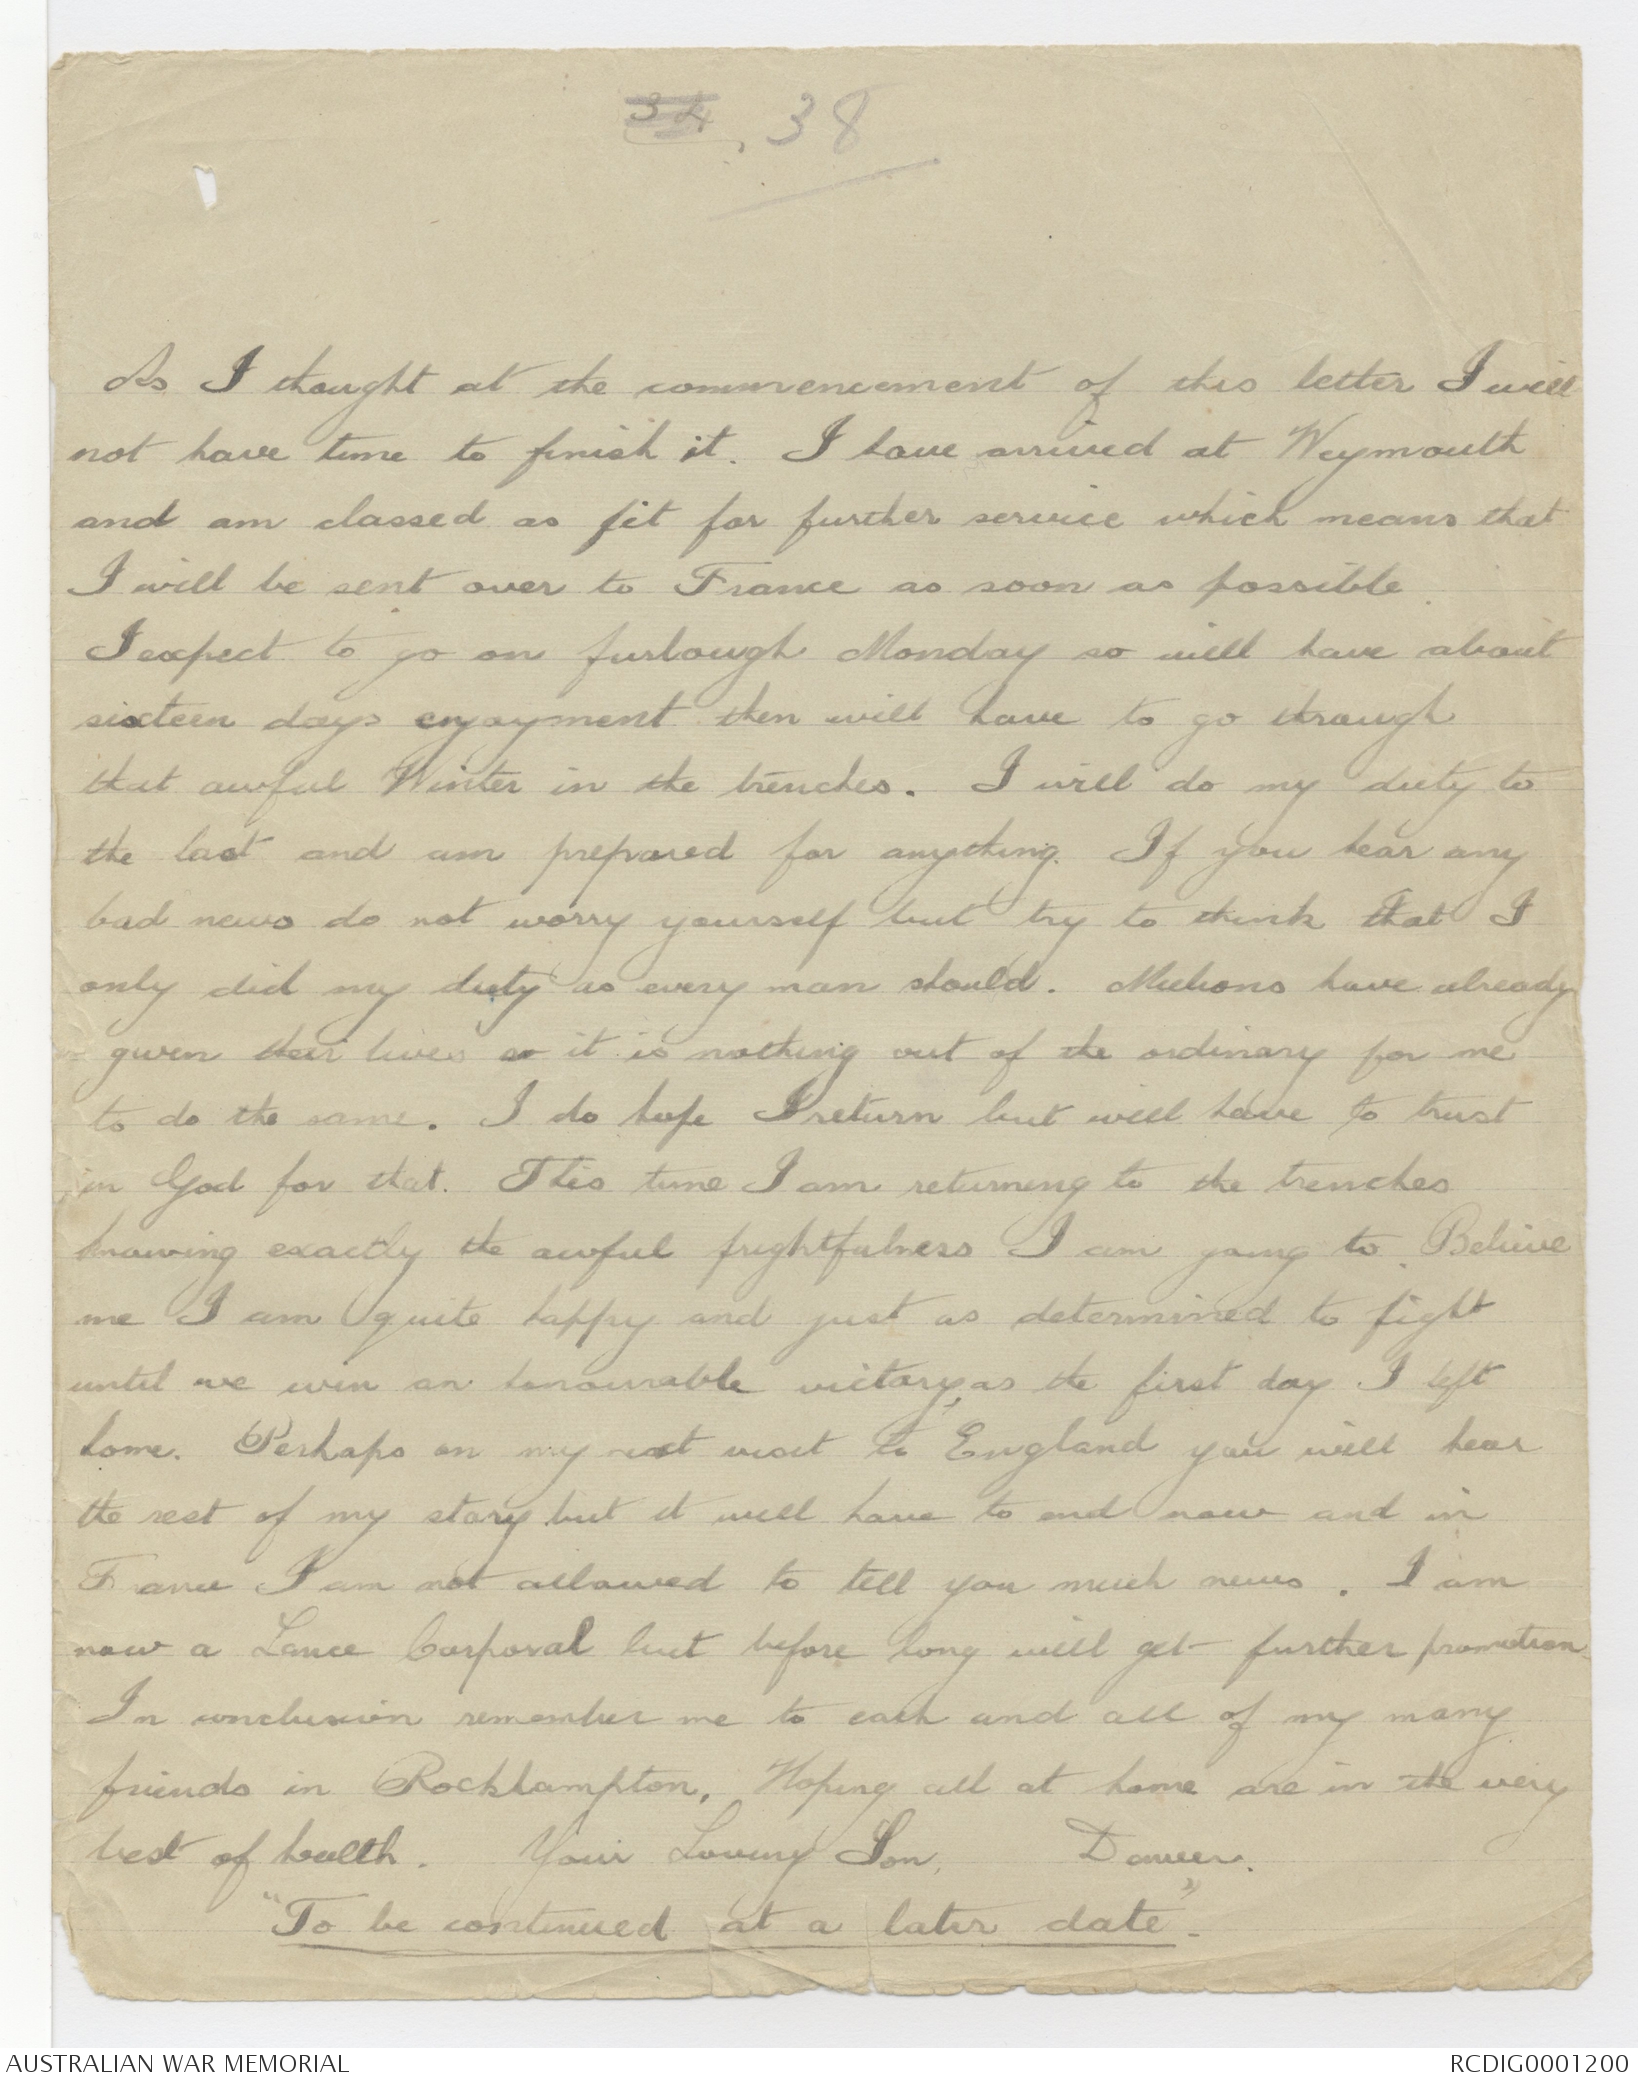 38
As I thought at the commencement of this letter I will
not have time to finish it. I have arrived at Weymouth
and am classed as fit for further service which means that
I will be sent over to France as soon as possible.
I expect to go on furlough Monday so will have about
sixteen days enjoyment then will have to go through
that awful Winter in the trenches. I will do my duty to
the last and am prepared for anything. If you hear any
bad news do not worry yourself but try to think that I
only did my duty as every man should. Millions have already
given their lives so it is nothing out of the ordinary for me
to do the same. I do hope I return but will have to trust
in God for that. This time I am returning to the trenches
knowing exactly the awful frightfulness I am going to. Believe
me I am quite happy and just as determined to fight
until we win an honourable victory, as the first day I left
home. Perhaps on my next visit to England you will hear
the rest of my story but it will have to end now and in
France I am not allowed to tell you much news. I am
now a Lance Corporal but before long will get further promotion.
In conclusion remember me to each and all of my many
friends in Rockhampton. Hoping all at home are in the very
best of health. Your Loving Son,
"To be continued at a later date".
AUSTRALIAN WAR MEMORIAL
RCDIG0001200